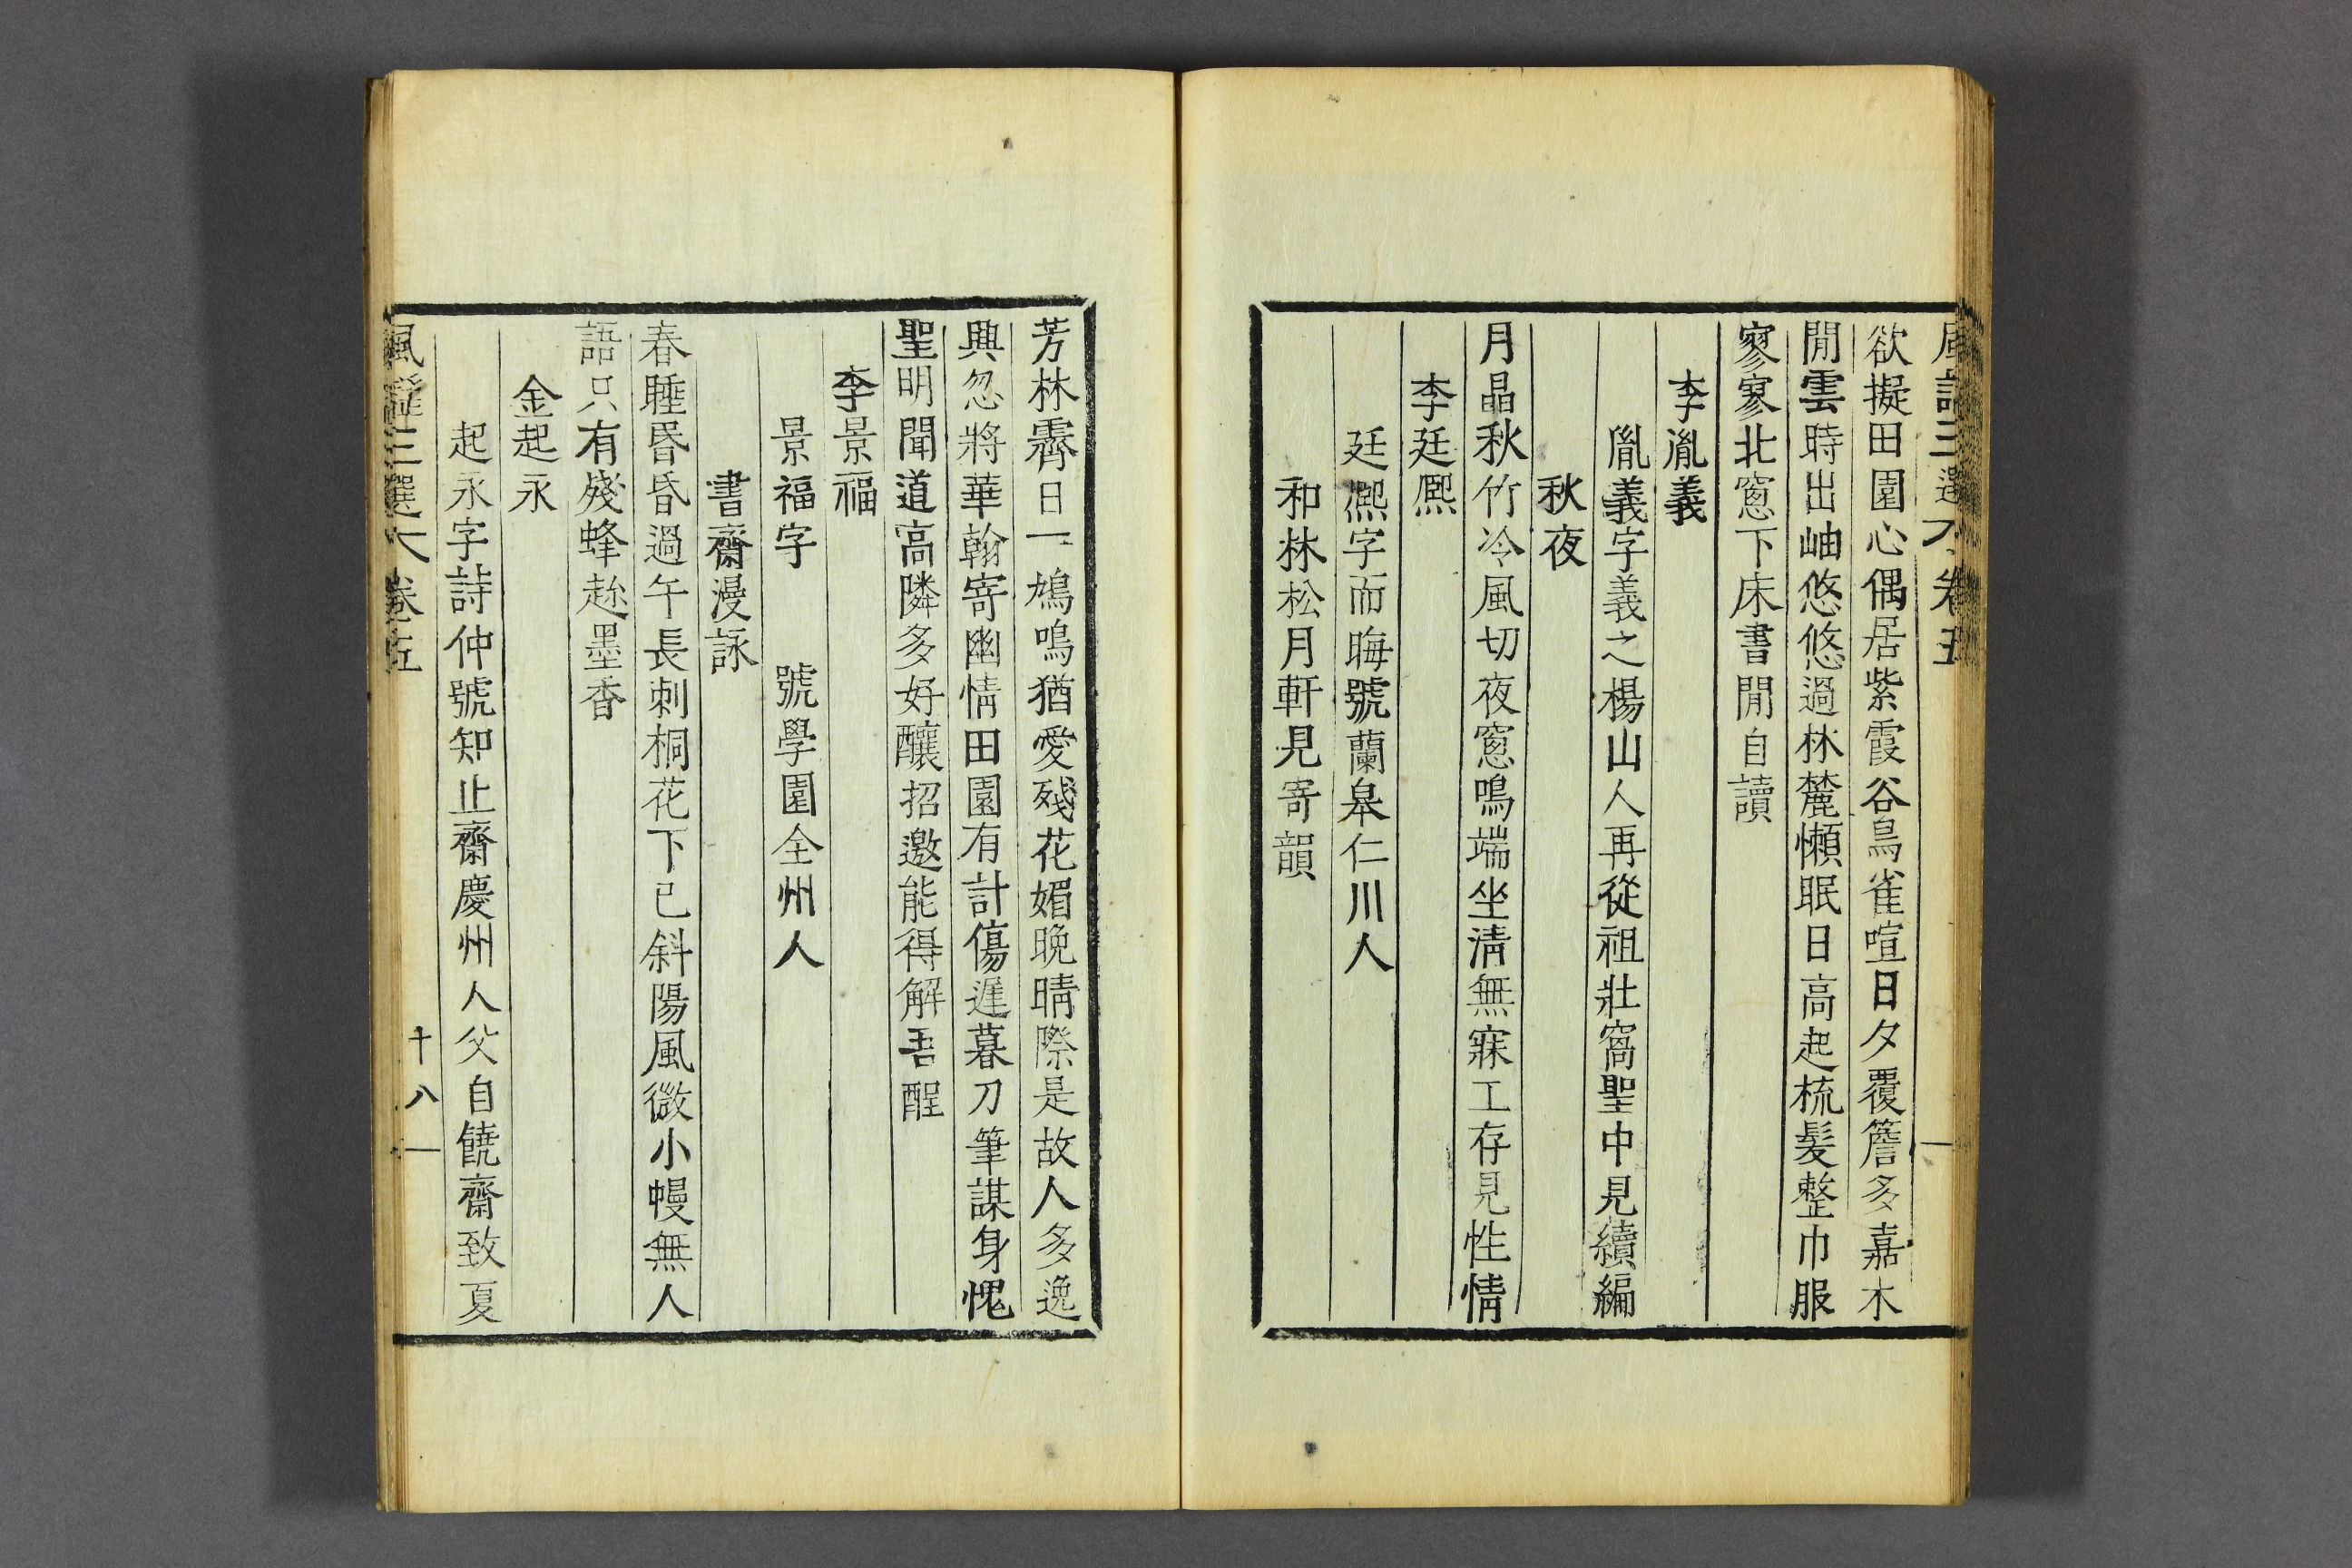 風謠三選 卷五
欲擬田園心偶居紫霞谷鳥雀喧日夕覆簷多嘉木
閒雲時出岫悠悠過林麓懶眠日高起梳髮整巾服
寥寥北窓下床書閒自讀
李胤義
胤義字義之楊山人再從祖壯窩聖中見續編
秋夜
月晶秋竹冷風切夜窓鳴端坐淸無寐工存見性情
李廷凞
廷凞字而晦號蘭皐仁川人
和林松月軒見寄韻
芳林霽日一鳩鳴猶愛殘花媚晩晴際是故人多逸
興忽將華翰寄幽情田園有計傷遲暮刀筆謀身愧
聖明聞道高隣多好釀招邀能得解吾酲
李景福
景福字 號學園全州人
書齋漫詠
春睡昏昏過午長刺桐花下已斜陽風微小幔無人
語只有殘蜂趂墨香
金起永
起永字詩仲號知止齋慶州人父自饒齋致夏
風謠三選 卷五
十八